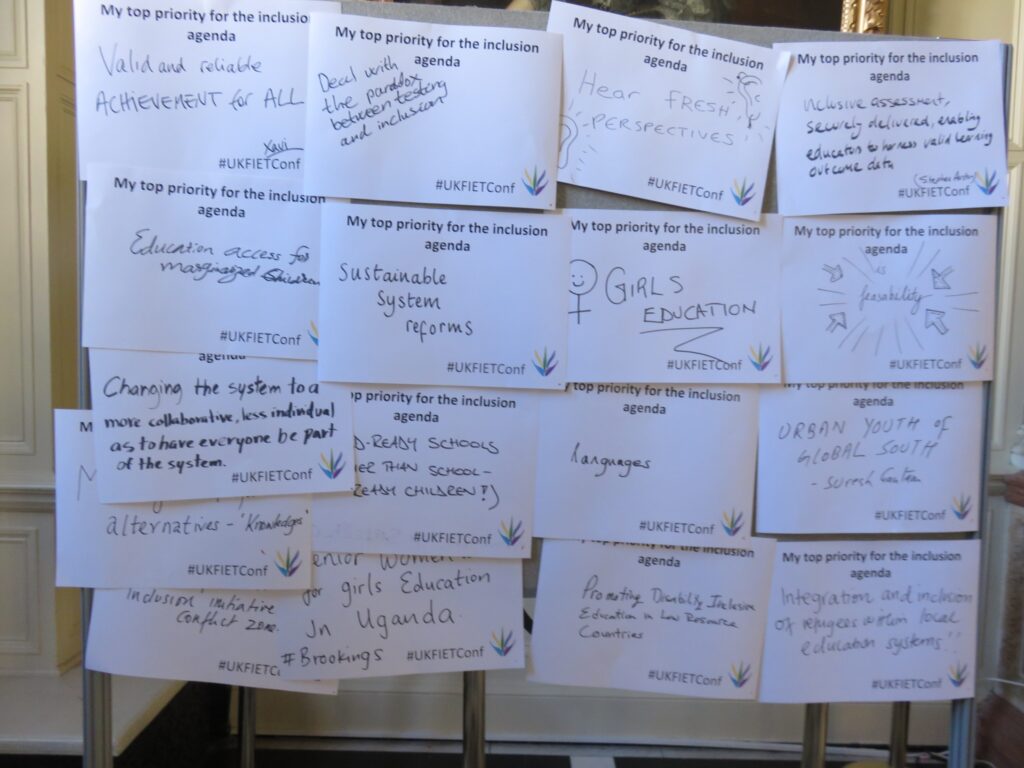 My top priority for the inclusion
agenda
Valid and reliable
ACHIEVEMENT for ALL
Xavi
#UKFIETConf
My top priority for the inclusion
agenda
Deal with
the paradox
between testing
and inclusion
#UKFIETConf
My top priority for the inclusion
agenda
Hear FRESH
PERSPECTIVES
#UKFIETConf
My top priority for the inclusion
agenda
Inclusive assessment,
securely delivered, enabling
educators to harness valid learning
outcome data
(Stephen
#UKFIETConf
My top priority for the inclusion
agenda
Education access for
marginazed children
#UKFIETConf
My top priority for the inclusion
agenda
Sustainable
System
reforms
#UKFIETConf
My top priority for the inclusion
agenda
GIRLS
EDUCATION
#UKFIETConf
My top priority for the inclusion
agenda
is
feasability
#UKFIETConf
agenda
Changing the system to a
more collaborative, less individual
as to have everyone be part
of the system.
#UKFIETConf
top priority for the inclusion
agenda
D-READY SCHOOLS
HER THAN SCHOOL-
READY CHILDREN!)
#UKFIETConf
My top priority for the inclusion
agenda
languages
#UKFIETConf
My top priority for the inclusion
agenda
URBAN YOUTH of
GLOBAL SOUTH
- Suresh
#UKFIETConf
alternatives - 'Knowledges'
#UKFIETConf
Inclusion initiative
Conflict zone.
#UKFIETC
enior Women
for girls Education
In Uganda.
#Brookings
#UKFIETConf
My top priority for the inclusion
agenda
Promoting Disability Inclusive
Education in Low Resource
Countries
#UKFIETConf
My top priority for the inclusion
agenda
Integration and inclusion
of refugees within local
education systems!!
#UKFIETConf